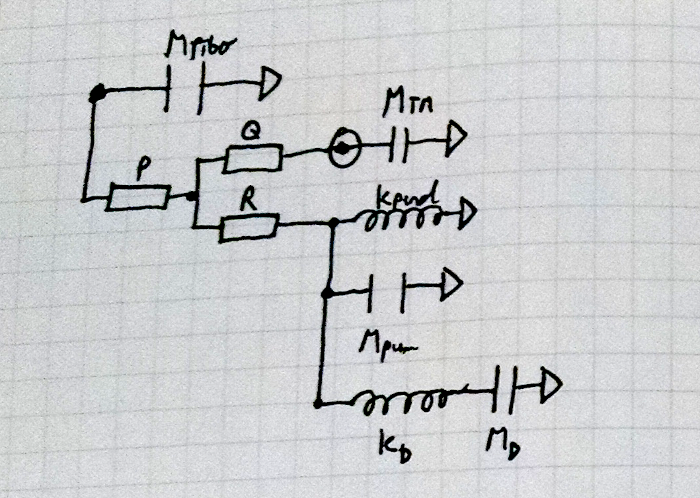 Mpibo
MTM
Q
P
R
kpend
Mpum
kD
MD